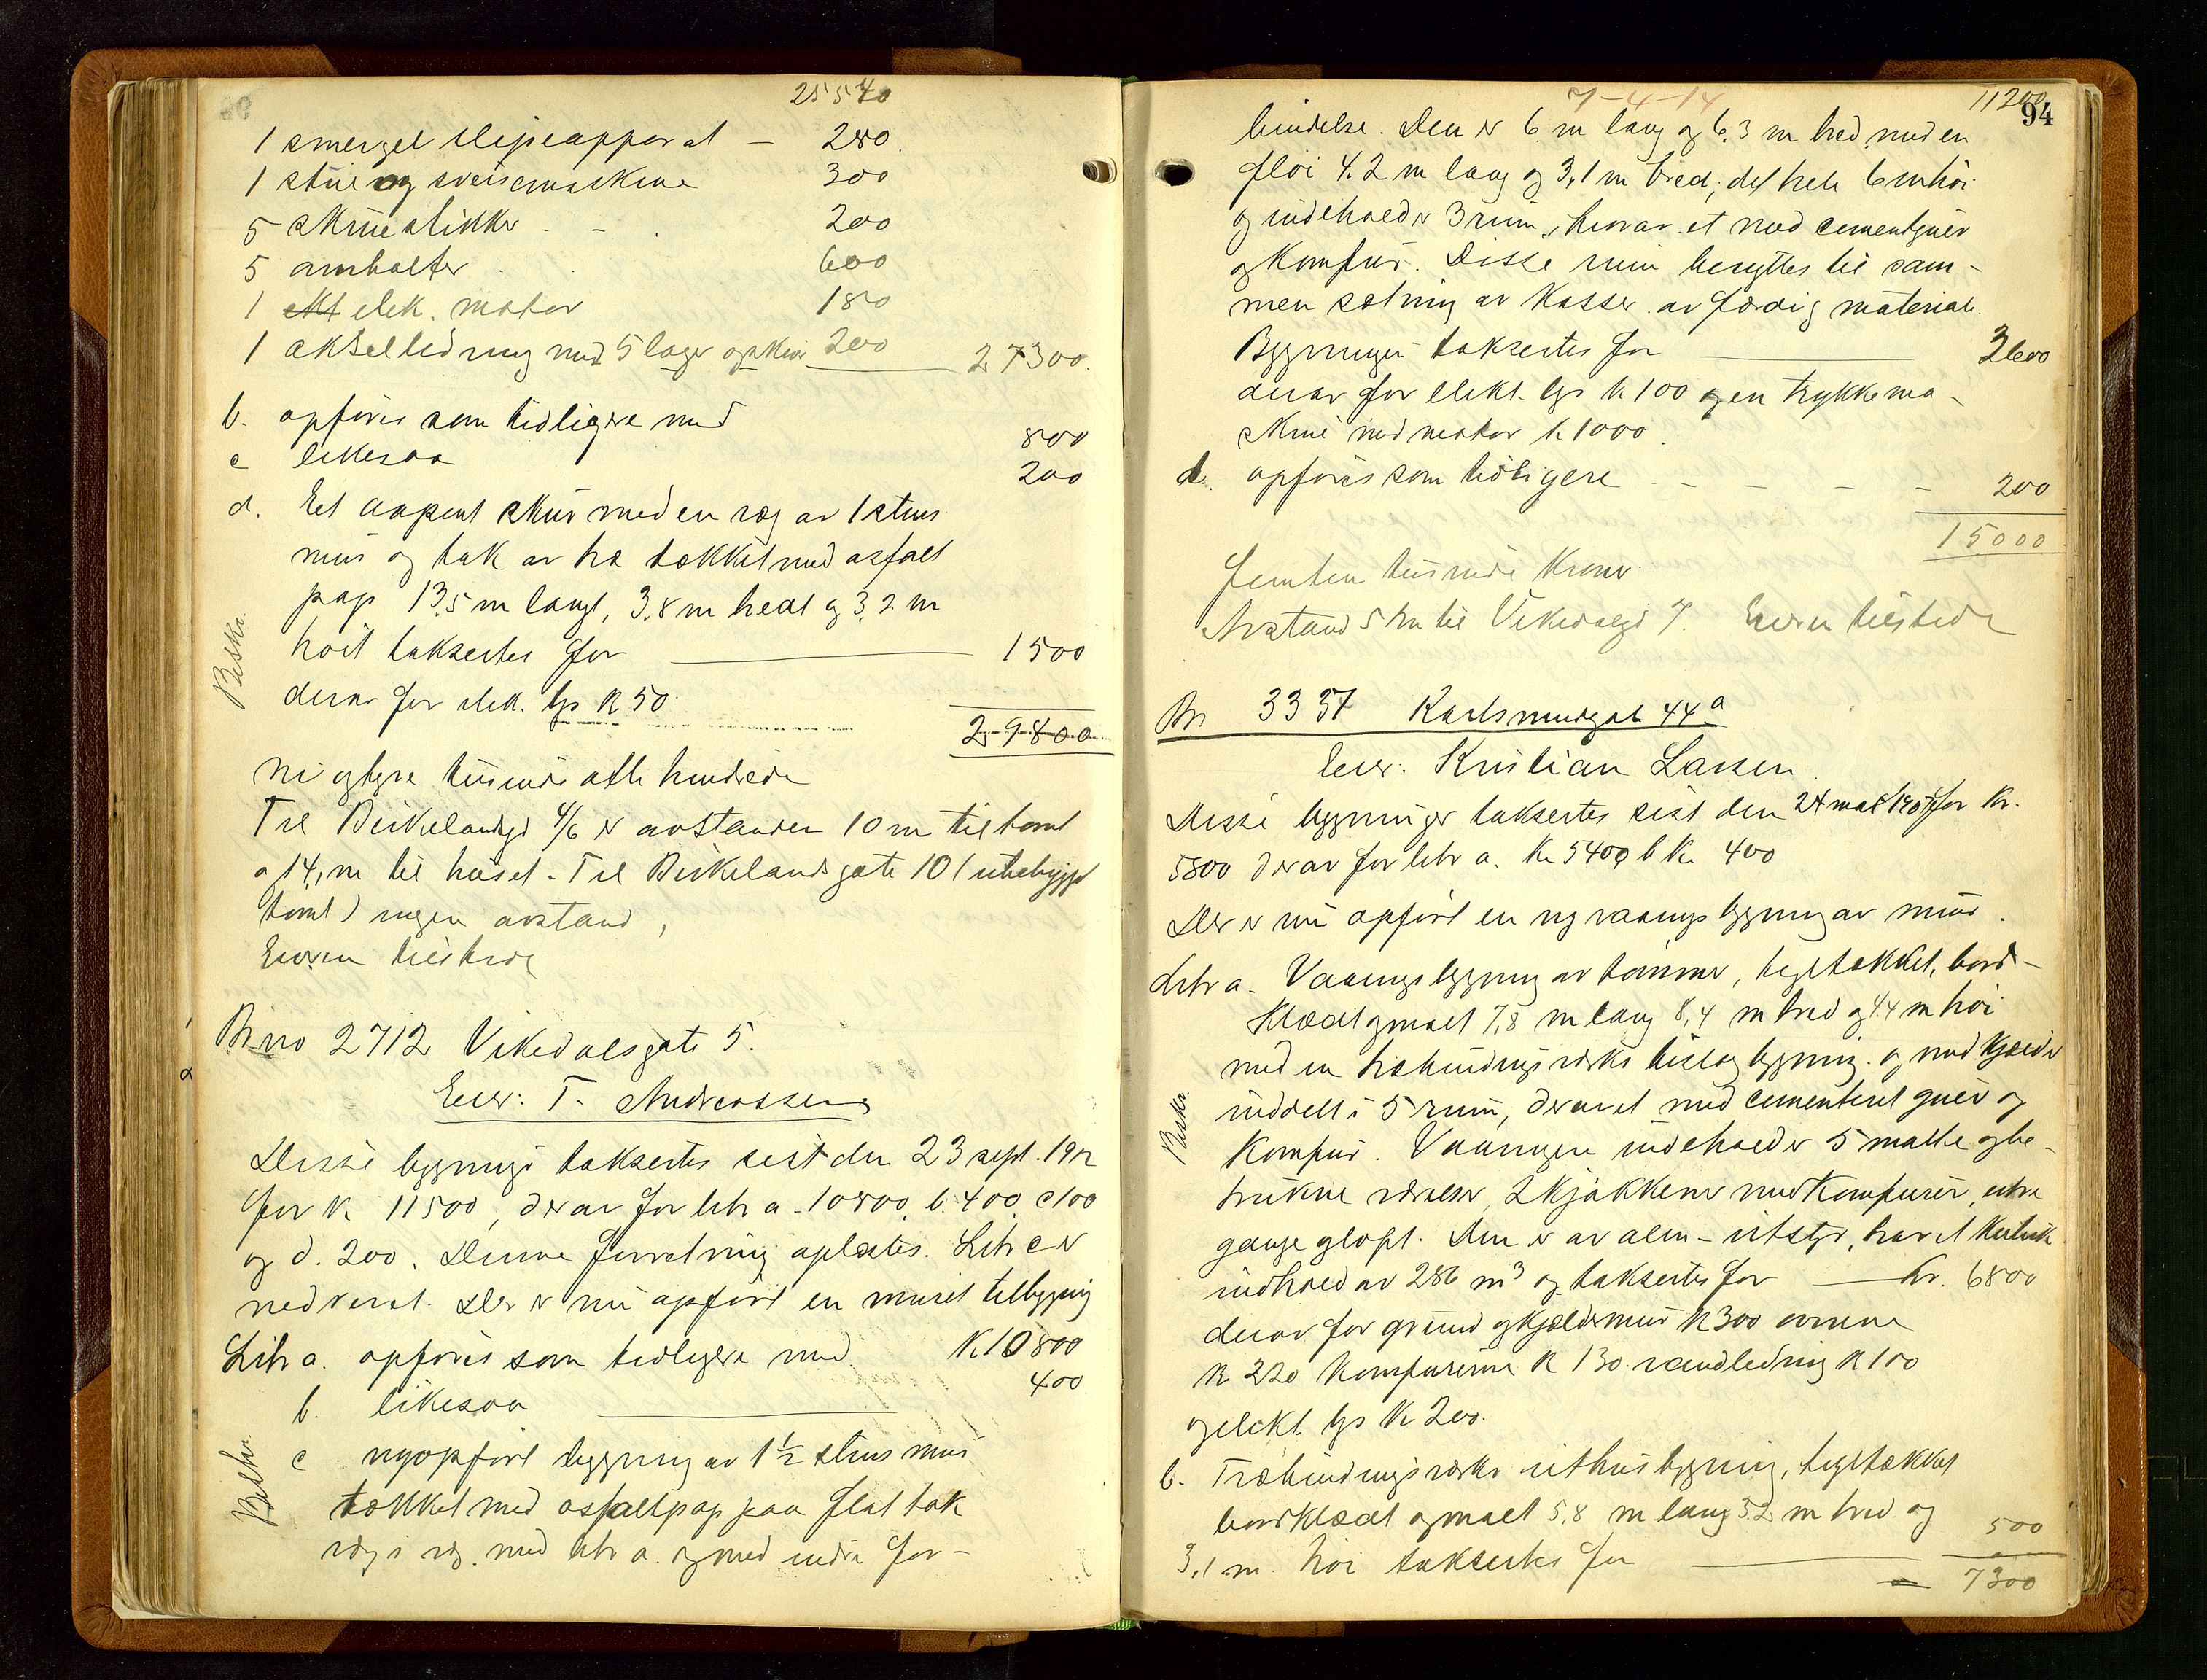 25540
1 smergel slipeapparat — 280.
1 stuie og sveisemaskine 300
5 skruestikker - 200
5 ambolter 600
1 elek. motor 180
1 akselledning med 5 lager og skive 200 27300.
b. opføres som tidligere med 800
c likesaa 200
d. Et aapent skur med en væg av 1 stens
mur og tak av træ tækket med asfalt
pap 13,5 m langt, 3,8 m bredt og 3,2 m
høit taksertes for 1500
Beskr.
derav for elek. lys k 50.
29800
ni og tyve tusinde otte hundrede
Til Birkelandsgt 4/6 er avstanden 10 m til tomt
og 14,1 m til huset. Til Birkelandsgate 10 (utebygget
tomt) ingen avstand,
Eieren tilstede
Br no 2712 Vikedalsgate 5.
Eier: T. Andreassen
Disse bygninger taksertes sist den 23 sept. 1912
for k. 11500, derav for litr a. 10800, b. 400, c 100
og d. 200. Denne forretning oplæstes. Litr c er
nedrevet. Der er nu opført en muret tilbygning
Litr a. opføres som tidligere med k 10800
b. likesaa 400
Beskr.
c nyopført bygning av 1½ stens mur
tækket med asfaltpap paa flat tak
væg i væg med litr a. og med indre for-
7-4-14
11200
94
bindelse. Den er 6 m lang og 6,3 m bred med en
fløi 4,2 m lang og 3,1 m bred; det hele 6 m høi
og indeholder 3 rum, hvorav et med cementgulv
og komfur. Disse rum benyttes til sam-
men sætning av kasser av færdig materiale.
Bygningen taksertes for 3600
derav for elekt. lys k 100 og en trykkema-
skine med motor k 1000.
d. opføres som tidligere - - - - 200
15000
Femten tusinde kroner.
Avstand 5 m til Vikedalsgt 7. Eieren tilstede
Br 3337 Karlsmindegate 44a
Eier: Kristian Larsen
Disse bygninger taksertes sist den 24 mai 1907 for kr.
5800 derav for litr a. kr 5400 b kr 400
Der er nu opført en ny vaanings bygning av mur.
Litr a. Vaaningsbygning av tømmer, tegltækket, bord-
klædt og malt 7,8 m lang 8,4 m bred og 4,4 m høi
med en træbindingsverks tilbygning og med kjælder
Beskr.
inddelt i 5 rum, derav et med cementeret gulv og
komfur. Vaaningen indeholder 5 malte og be-
trukne værelser, 2 kjøkkener med komfurer, intre
gange og loft. Den er av alm- utstyr, har et kubik
indhold av 286 m³ og taksertes for — kr. 6800
derav for grund og kjældermur k 300 ovnene
k 220 komfurerne k 130 vandledning k 100
og elekt. lys k 200.
b. Træbindingsverks uthusbygning, tegltækket
bordklædt og malt 5,8 m lang 3,2 m bred og
3,1 m. høi taksertes for 500
7300